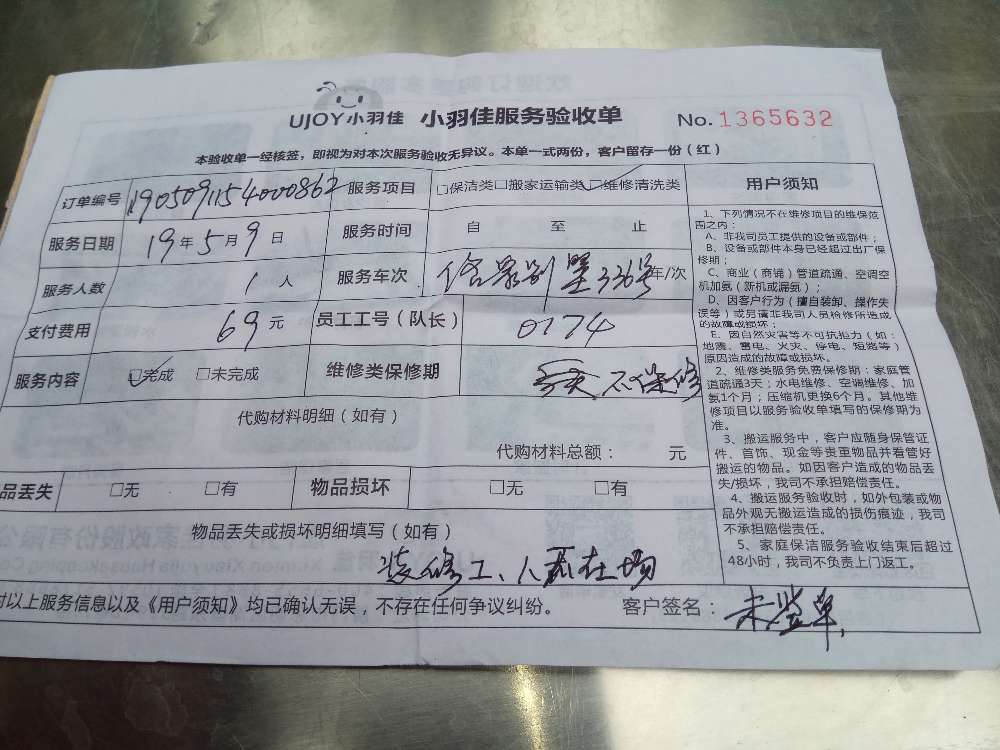 UJOY小羽佳 小羽佳服务验收单 No. 1365632
本验收单一经核签，即视为对本次服务验收无异议。本单一式两份，客户留存一份（红）
订单编号 1905091154000862 服务项目 □保洁类□搬家运输类□维修清洗类
服务日期 19年5月9日 服务时间 自 至 止
服务人数 1人 服务车次 别墅336号 车/次
支付费用 69元 员工工号（队长） 0174
服务内容 □完成 □未完成 维修类保修期 不保修
代购材料明细（如有）
代购材料总额： 元
品丢失 □无 □有 物品损坏 □无 □有
物品丢失或损坏明细填写（如有）
装修工、人不在场
对以上服务信息以及《用户须知》均已确认无误，不存在任何争议纠纷。 客户签名： 未签单
用户须知
1、下列情况不在维修项目的维保范
围之内：
A、非我司员工提供的设备或部件；
B、设备或部件本身已经超过出厂保
修期；
C、商业（商铺）管道疏通、空调空
机加氨（新机或漏氨）；
D、因客户行为（擅自装卸、操作失
误等）或另请非我司人员检修所造成
的故障或损坏；
E、因自然灾害等不可抗拒力（如：
地震、雷电、火灾、停电、短路等）
原因造成的故障或损坏。
2、维修类服务免费保修期：家庭管
道疏通3天；水电维修、空调维修、加
氨1个月；压缩机更换6个月。其他维
修项目以服务验收单填写的保修期为
准。
3、搬运服务中，客户应随身保管证
件、首饰、现金等贵重物品并看管好
搬运的物品。如因客户造成的物品丢
失/损坏，我司不承担赔偿责任。
4、搬运服务验收时，如外包装或物
品外观无搬运造成的损伤痕迹，我司
不承担赔偿责任。
5、家庭保洁服务验收结束后超过
48小时，我司不负责上门返工。